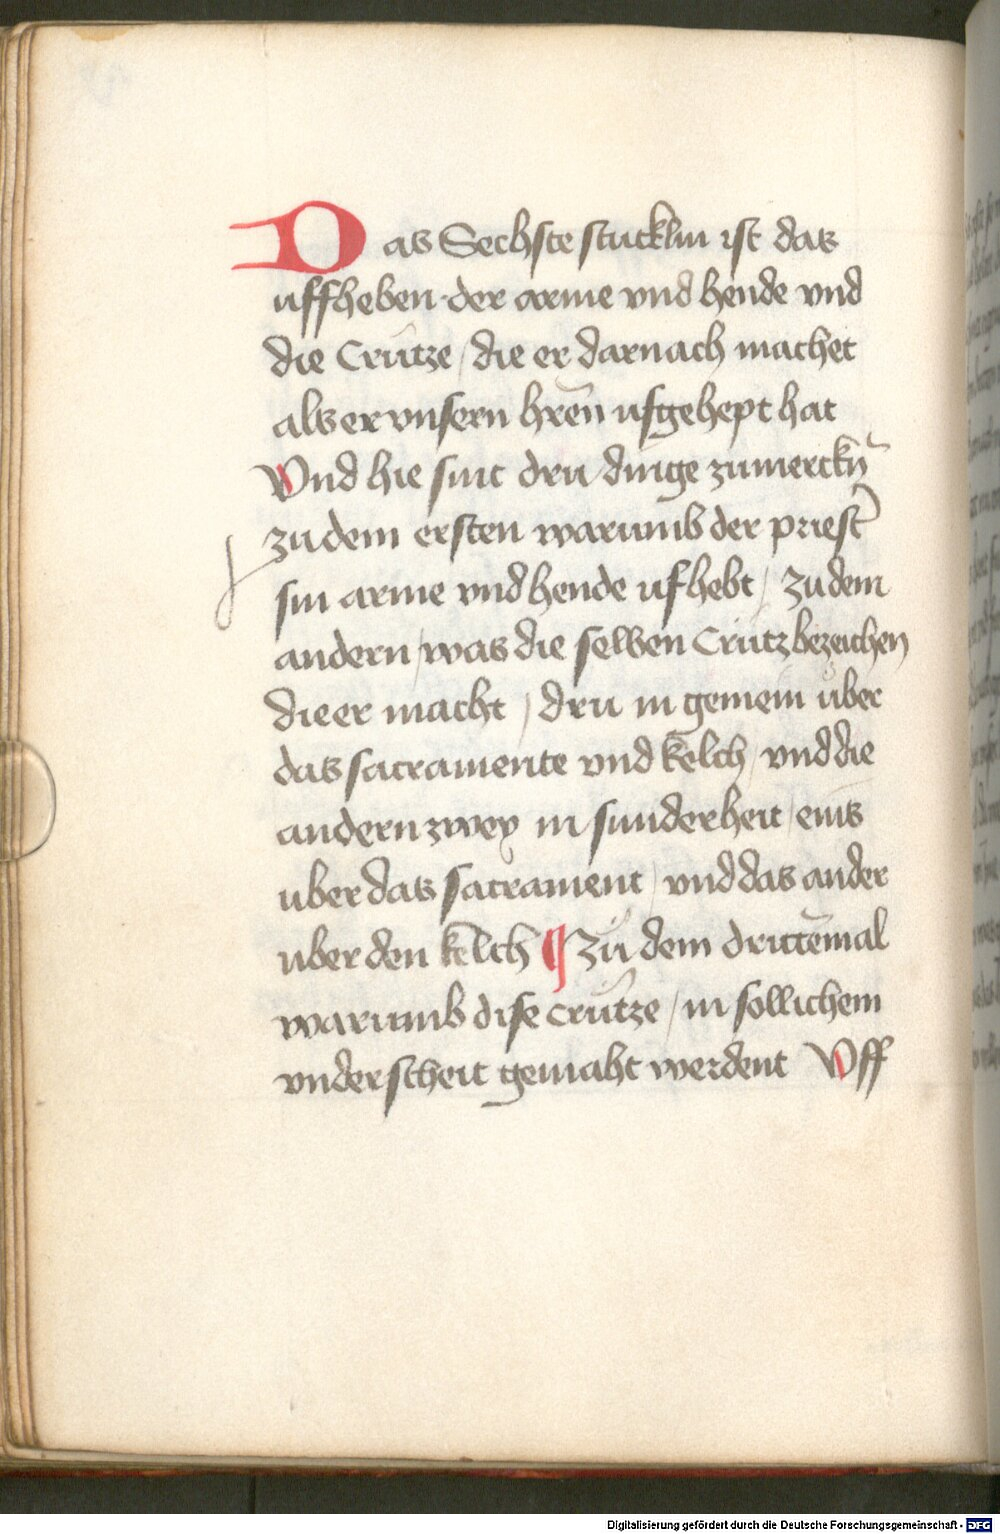 Das Sechste stucklin ist das
uffheben der arme vnd hende vnd
die Crutze / die er darnach machet
als er vnsern hren̄ ufgehept hat
Vnd hie sint dru dinge zu merckn̄
zu dem ersten warumb der priest̄
sin arme vnd hende ufhebt / Zu dem
andern / was die selben Crutz bezeichen
die er macht / dru in gemein uͦber
das sacramente vnd kelch / vnd die
andern zwey in sunderheit / eins
uber das sacrament / vnd das ander
uber den kelch ¶ Zuͦ dem drittēmal
warumb dise crutze / in sollichem
vnderscheit gemaht werdent Vff
Digitalisierung gefördert durch die Deutsche Forschungsgemeinschaft - DFG